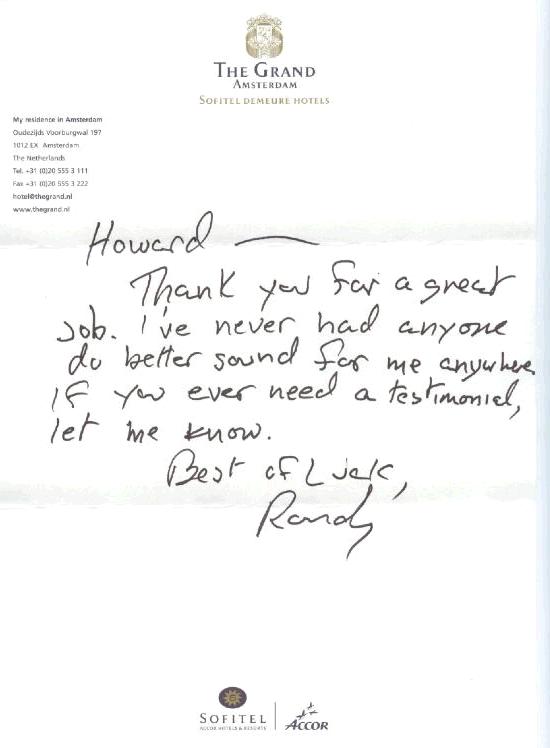 THE GRAND
AMSTERDAM
SOFITEL DEMEURE HOTELS
My residence in Amsterdam
Oudezijds Voorburgwal 197
1012 EX Amsterdam
The Netherlands
Tel. +31 (0)20 555 3 111
Fax +31 (0)20 555 3 222
hotel@thegrand.nl
www.thegrand.nl
Howard —
Thank you for a great
job. I've never had anyone
do better sound for me anywhere
If you ever need a testimonial,
let me know.
Best of Luck,
Randy
SOFITEL
ACCOR HOTELS & RESORTS
ACCOR